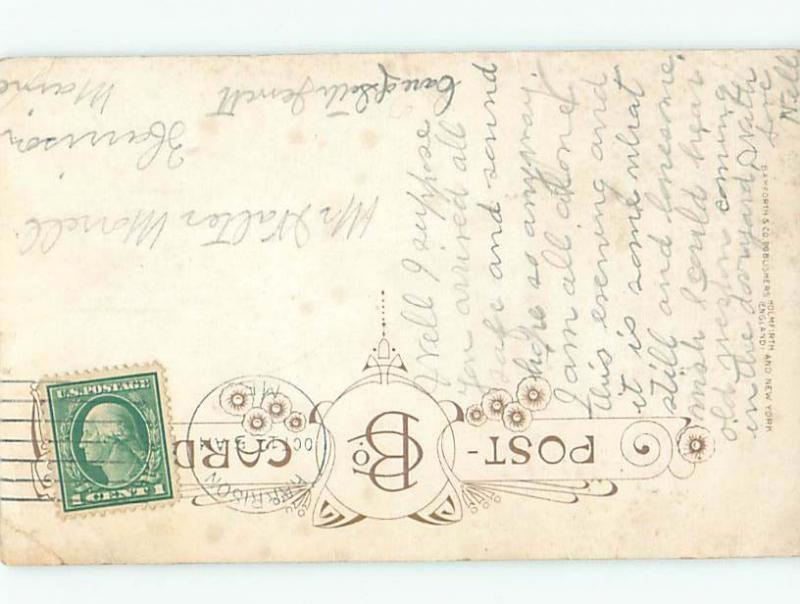 POST-
CARD
B Co
BAMFORTH & CO PUBLISHERS HOLMFIRTH AND NEW YORK
(ENGLAND)
U.S. POSTAGE
1 CENT 1
HARRISON
OCT
Well I suppose
you arrived all
safe and sound
hope so anyway.
I am all alone
this evening and
it is some what
still and lonesome.
wish I could hear
old
coming
in the dooryard. With
love
Nell
Mr Walter Morrell
Harrison
Maine